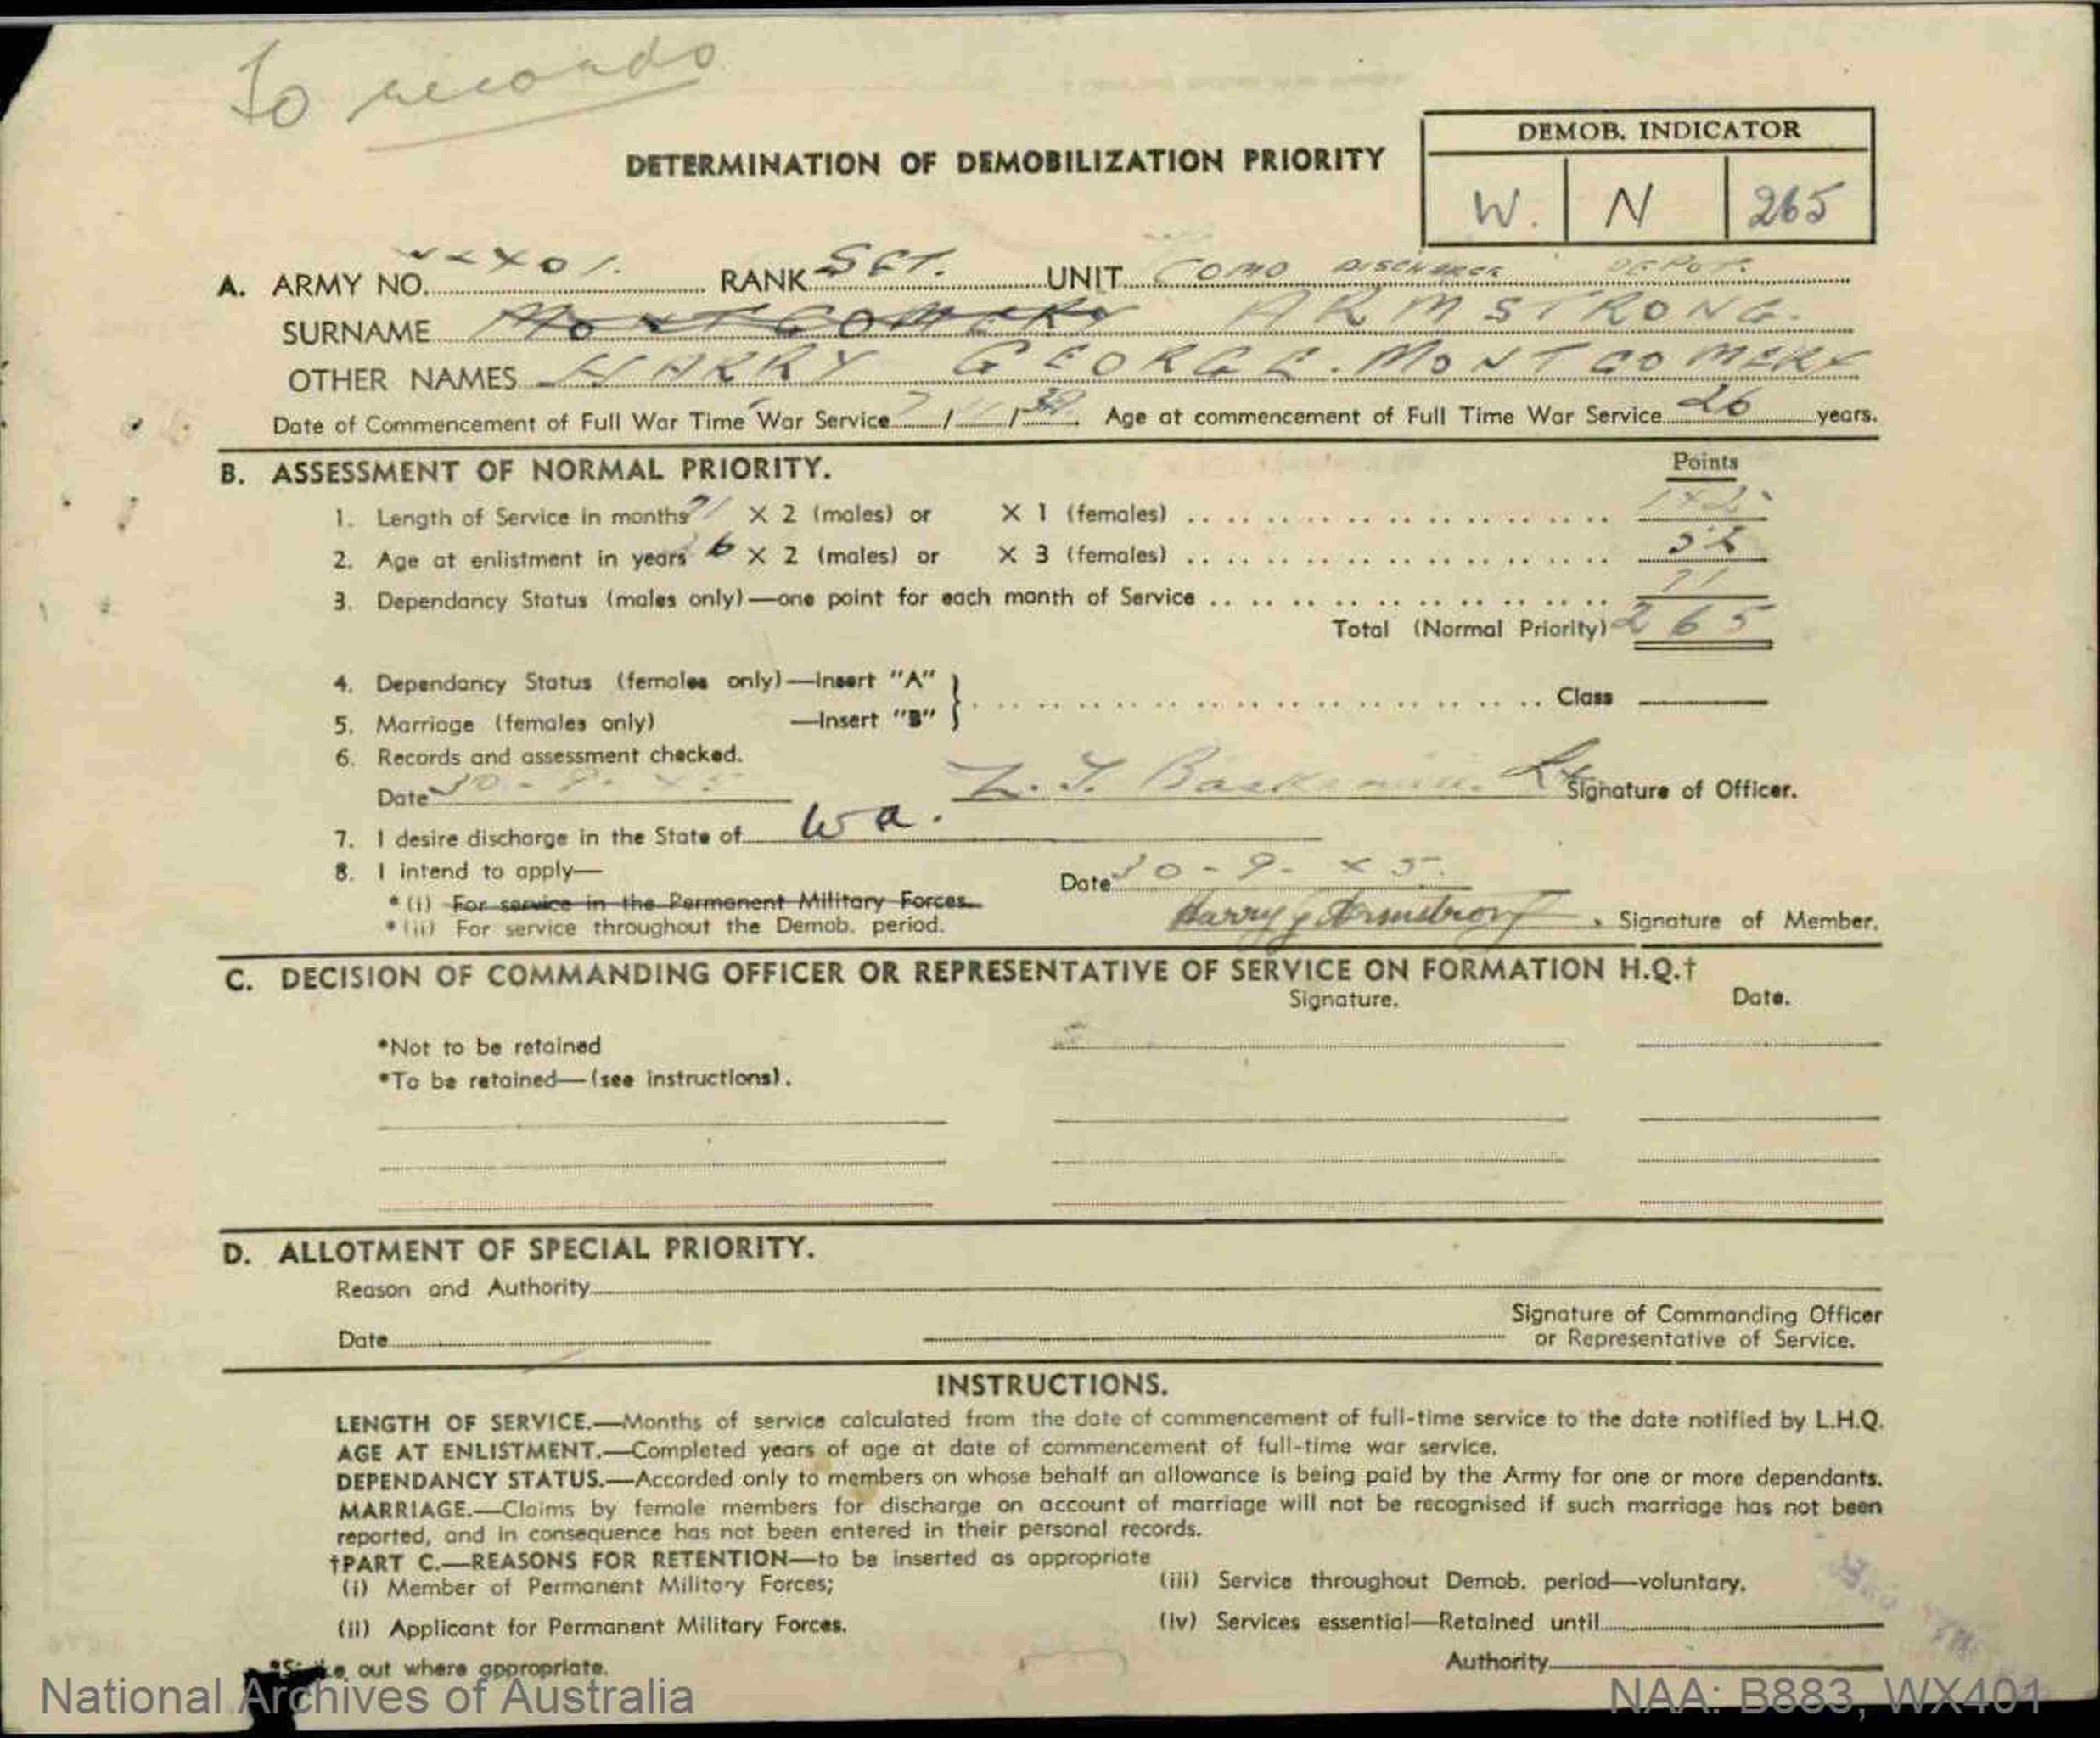 To records
DETERMINATION OF DEMOBILIZATION PRIORITY
DEMOB. INDICATOR
W. N 265
A. ARMY NO. WX401. RANK SGT. UNIT COMO DISCHARGE DEPOT.
SURNAME MONTGOMERY ARMSTRONG.
OTHER NAMES HARRY GEORGE. MONTGOMERY
Date of Commencement of Full War Time War Service 7/11/39. Age at commencement of Full Time War Service 26 years.
B. ASSESSMENT OF NORMAL PRIORITY. Points
1. Length of Service in months 71 X 2 (males) or X 1 (females) 142
2. Age at enlistment in years 26 X 2 (males) or X 3 (females) 52
3. Dependancy Status (males only)—one point for each month of Service 71
Total (Normal Priority) 265
4. Dependancy Status (females only)—Insert "A"
Class
5. Marriage (females only) —Insert "B"
6. Records and assessment checked.
Date 30-9-45 L. J. Lt Signature of Officer.
7. I desire discharge in the State of Wa.
8. I intend to apply— Date 30-9-45.
*(i) For service in the Permanent Military Forces.
*(ii) For service throughout the Demob. period. Harry G Armstrong. Signature of Member.
C. DECISION OF COMMANDING OFFICER OR REPRESENTATIVE OF SERVICE ON FORMATION H.Q.†
Signature. Date.
*Not to be retained
*To be retained—(see instructions).
D. ALLOTMENT OF SPECIAL PRIORITY.
Reason and Authority
Signature of Commanding Officer
Date or Representative of Service.
INSTRUCTIONS.
LENGTH OF SERVICE.—Months of service calculated from the date of commencement of full-time service to the date notified by L.H.Q.
AGE AT ENLISTMENT.—Completed years of age at date of commencement of full-time war service.
DEPENDANCY STATUS.—Accorded only to members on whose behalf an allowance is being paid by the Army for one or more dependants.
MARRIAGE.—Claims by female members for discharge on account of marriage will not be recognised if such marriage has not been
reported, and in consequence has not been entered in their personal records.
†PART C.—REASONS FOR RETENTION—to be inserted as appropriate
(i) Member of Permanent Military Forces; (iii) Service throughout Demob. period—voluntary.
(ii) Applicant for Permanent Military Forces. (iv) Services essential—Retained until
*Strike out where appropriate. Authority
National Archives of Australia NAA: B883, WX401